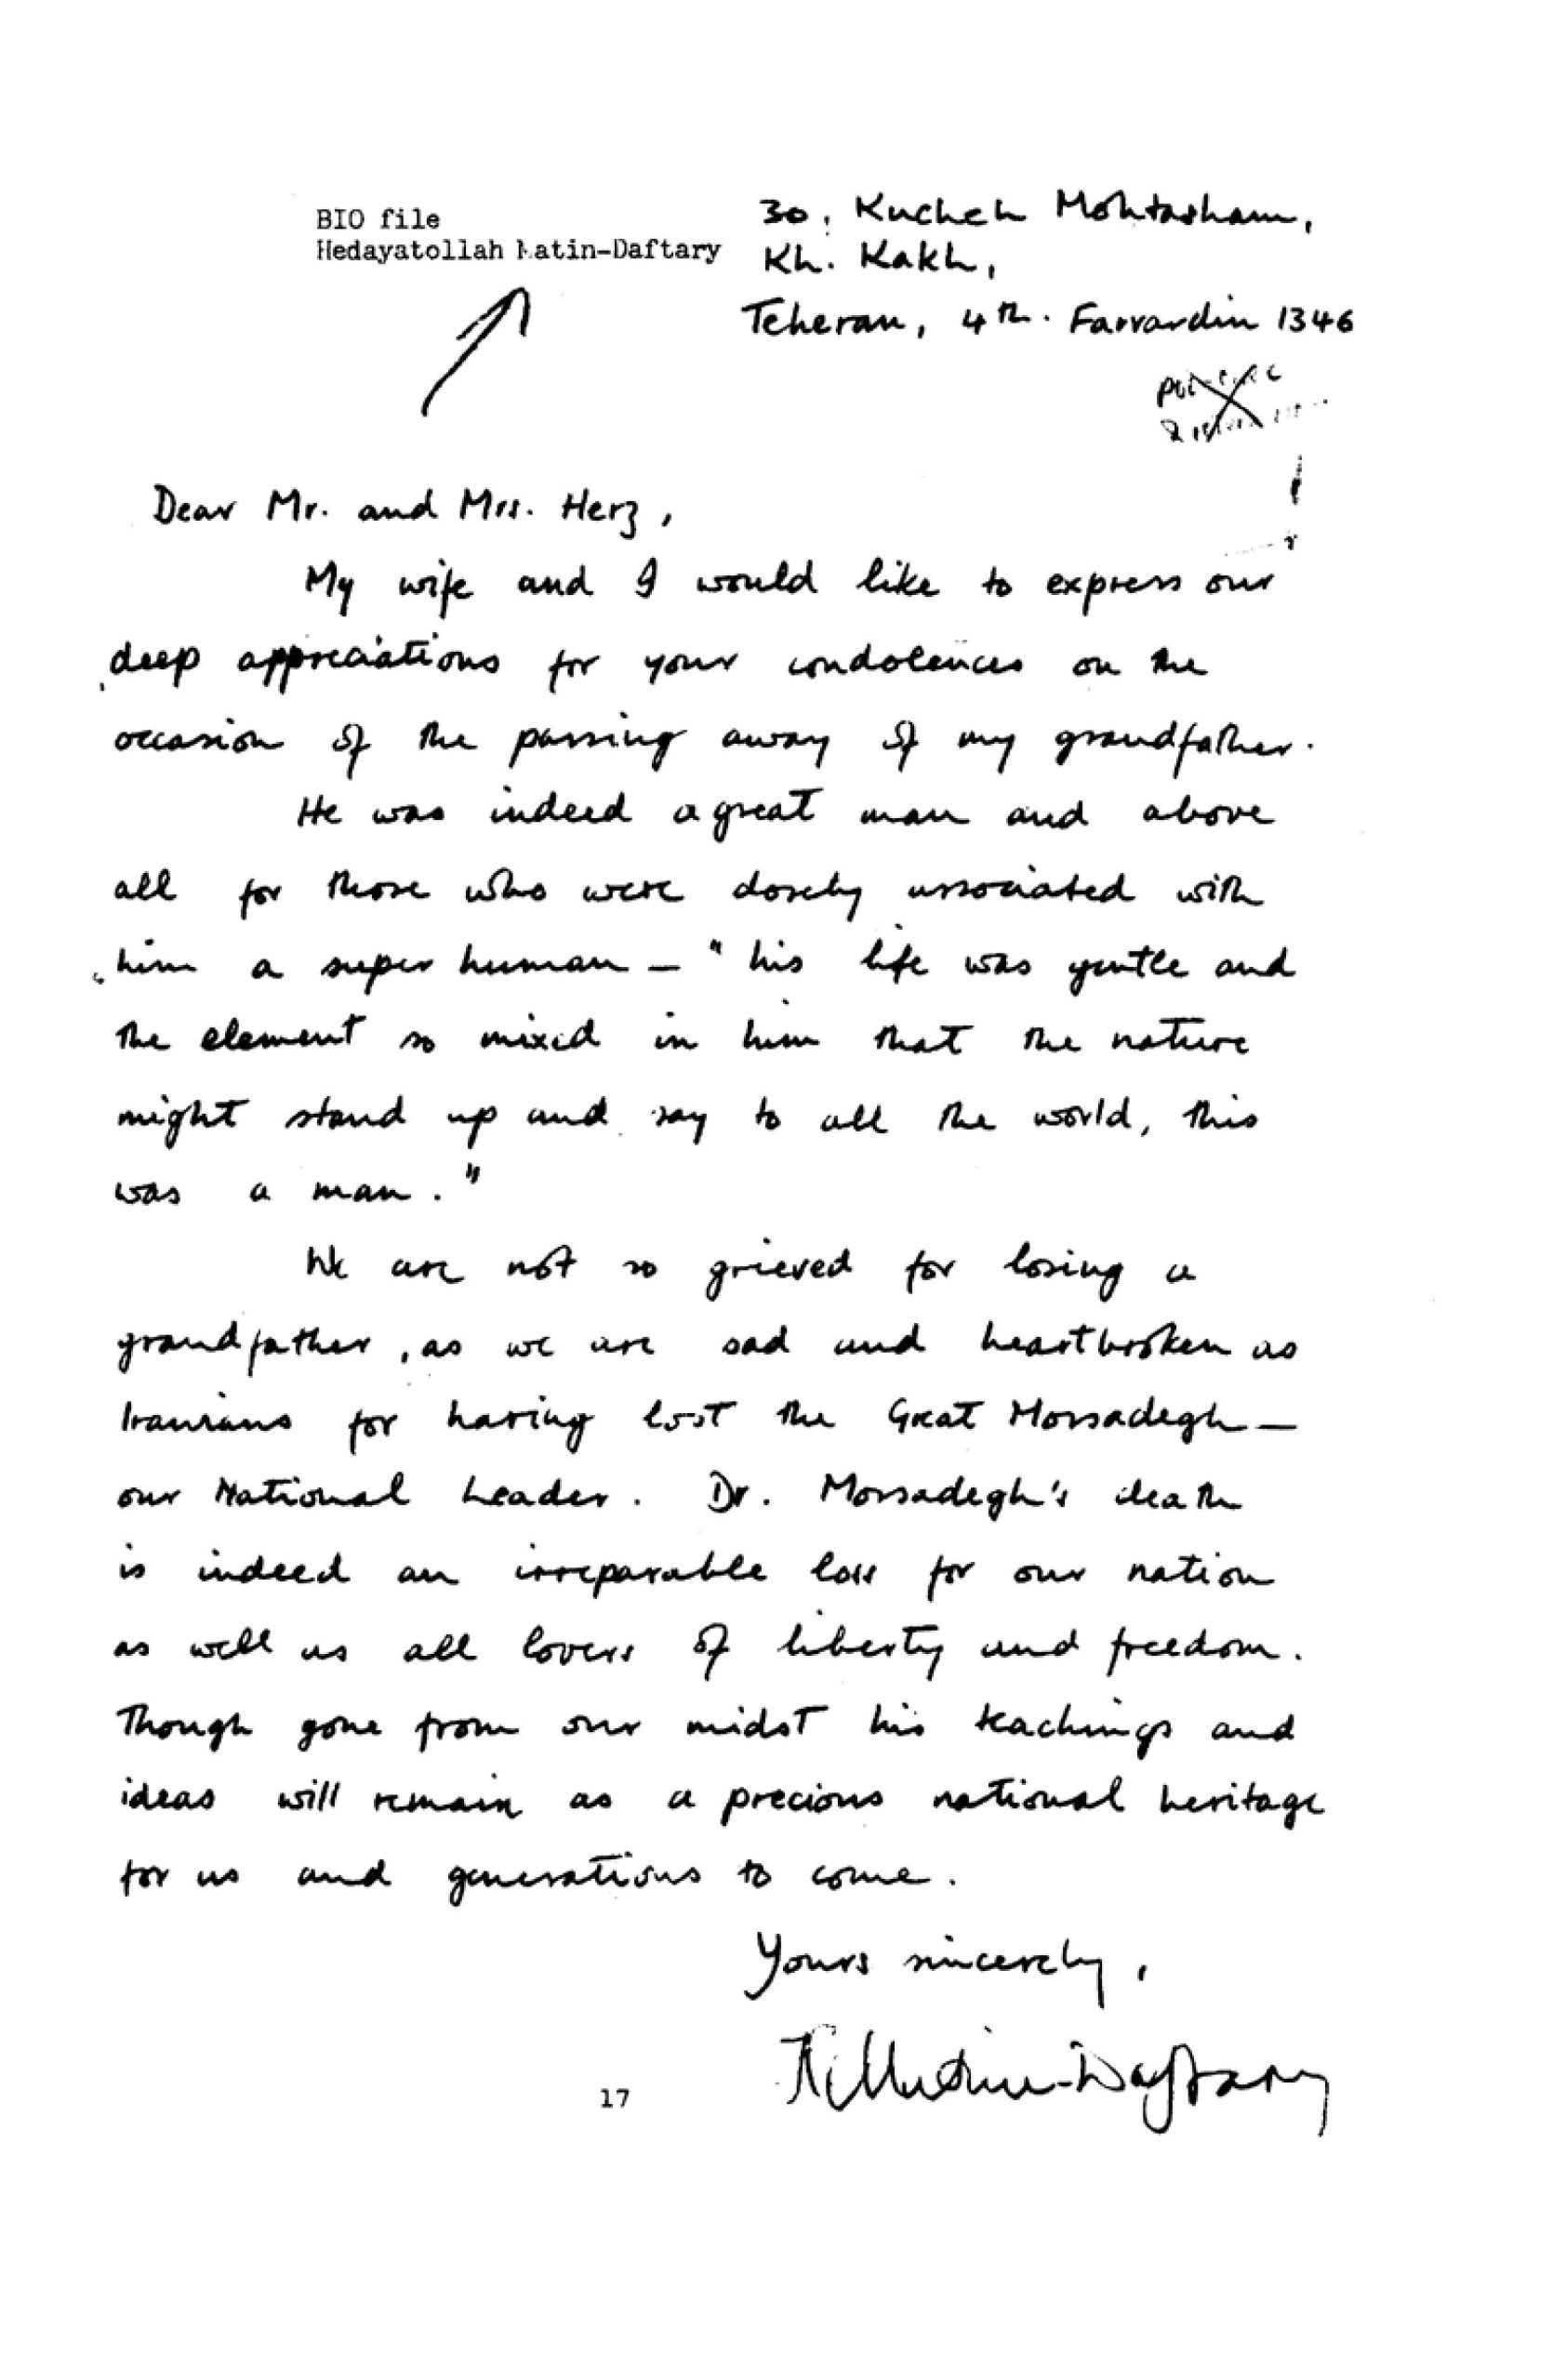 BIO file
Hedayatollah Matin-Daftary
30, Kucheh Mohtasham,
Kh. Kakh,
Teheran, 4th. Farvardin 1346
Dear Mr. and Mrs. Herz,
My wife and I would like to express our
deep appreciations for your condolences on the
occasion of the passing away of my grandfather.
He was indeed a great man and above
all for those who were closely associated with
him a super human — "his life was gentle and
the element so mixed in him that the nature
might stand up and say to all the world, this
was a man."
We are not so grieved for losing a
grandfather, as we are sad and heartbroken as
Iranians for having lost the Great Mossadegh —
our National Leader. Dr. Mossadegh's death
is indeed an irreparable loss for our nation
as well as all lovers of liberty and freedom.
Though gone from our midst his teachings and
ideas will remain as a precious national heritage
for us and generations to come.
Yours sincerely,
H. Matine-Daftary
17